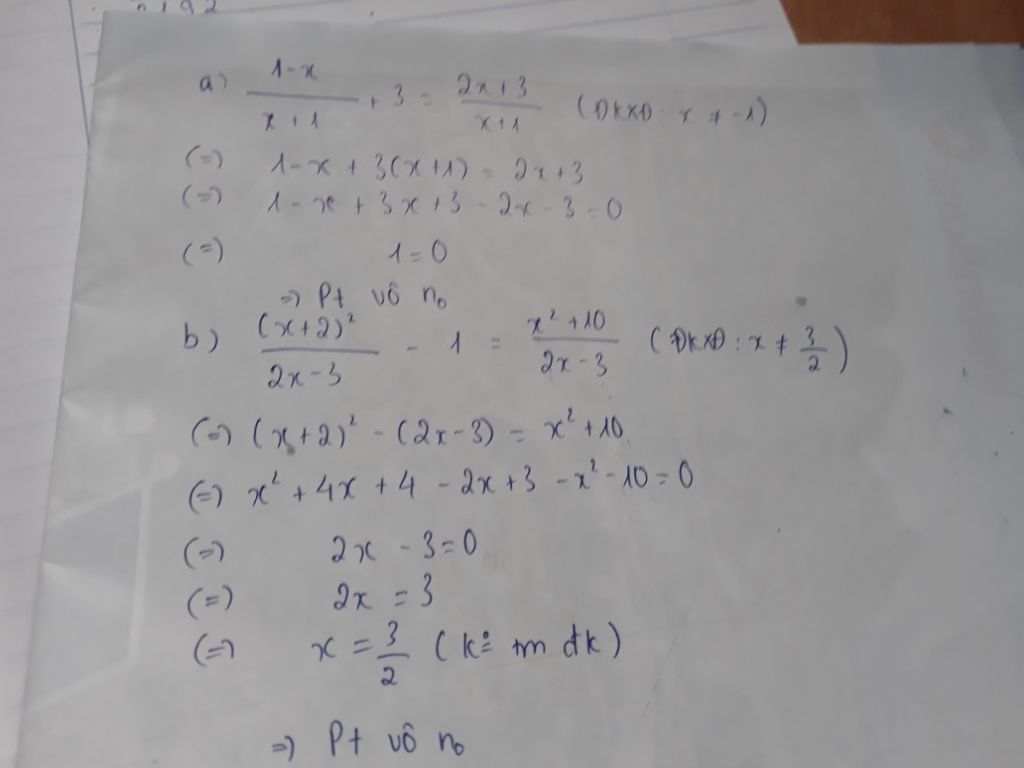 a) (1-x)/(x+1) + 3 = (2x+3)/(x+1) (ĐKXĐ: x ≠ -1)
(=) 1-x + 3(x+1) = 2x+3
(=) 1-x + 3x+3 - 2x - 3 = 0
(=) 1=0
=> Pt vô nₒ
b) (x+2)²/(2x-3) - 1 = (x²+10)/(2x-3) (ĐKXĐ: x ≠ 3/2)
(=) (x+2)² - (2x-3) = x²+10
(=) x² + 4x + 4 - 2x + 3 - x² - 10 = 0
(=) 2x - 3 = 0
(=) 2x = 3
(=) x = 3/2 (kº tm đk)
=> Pt vô nₒ